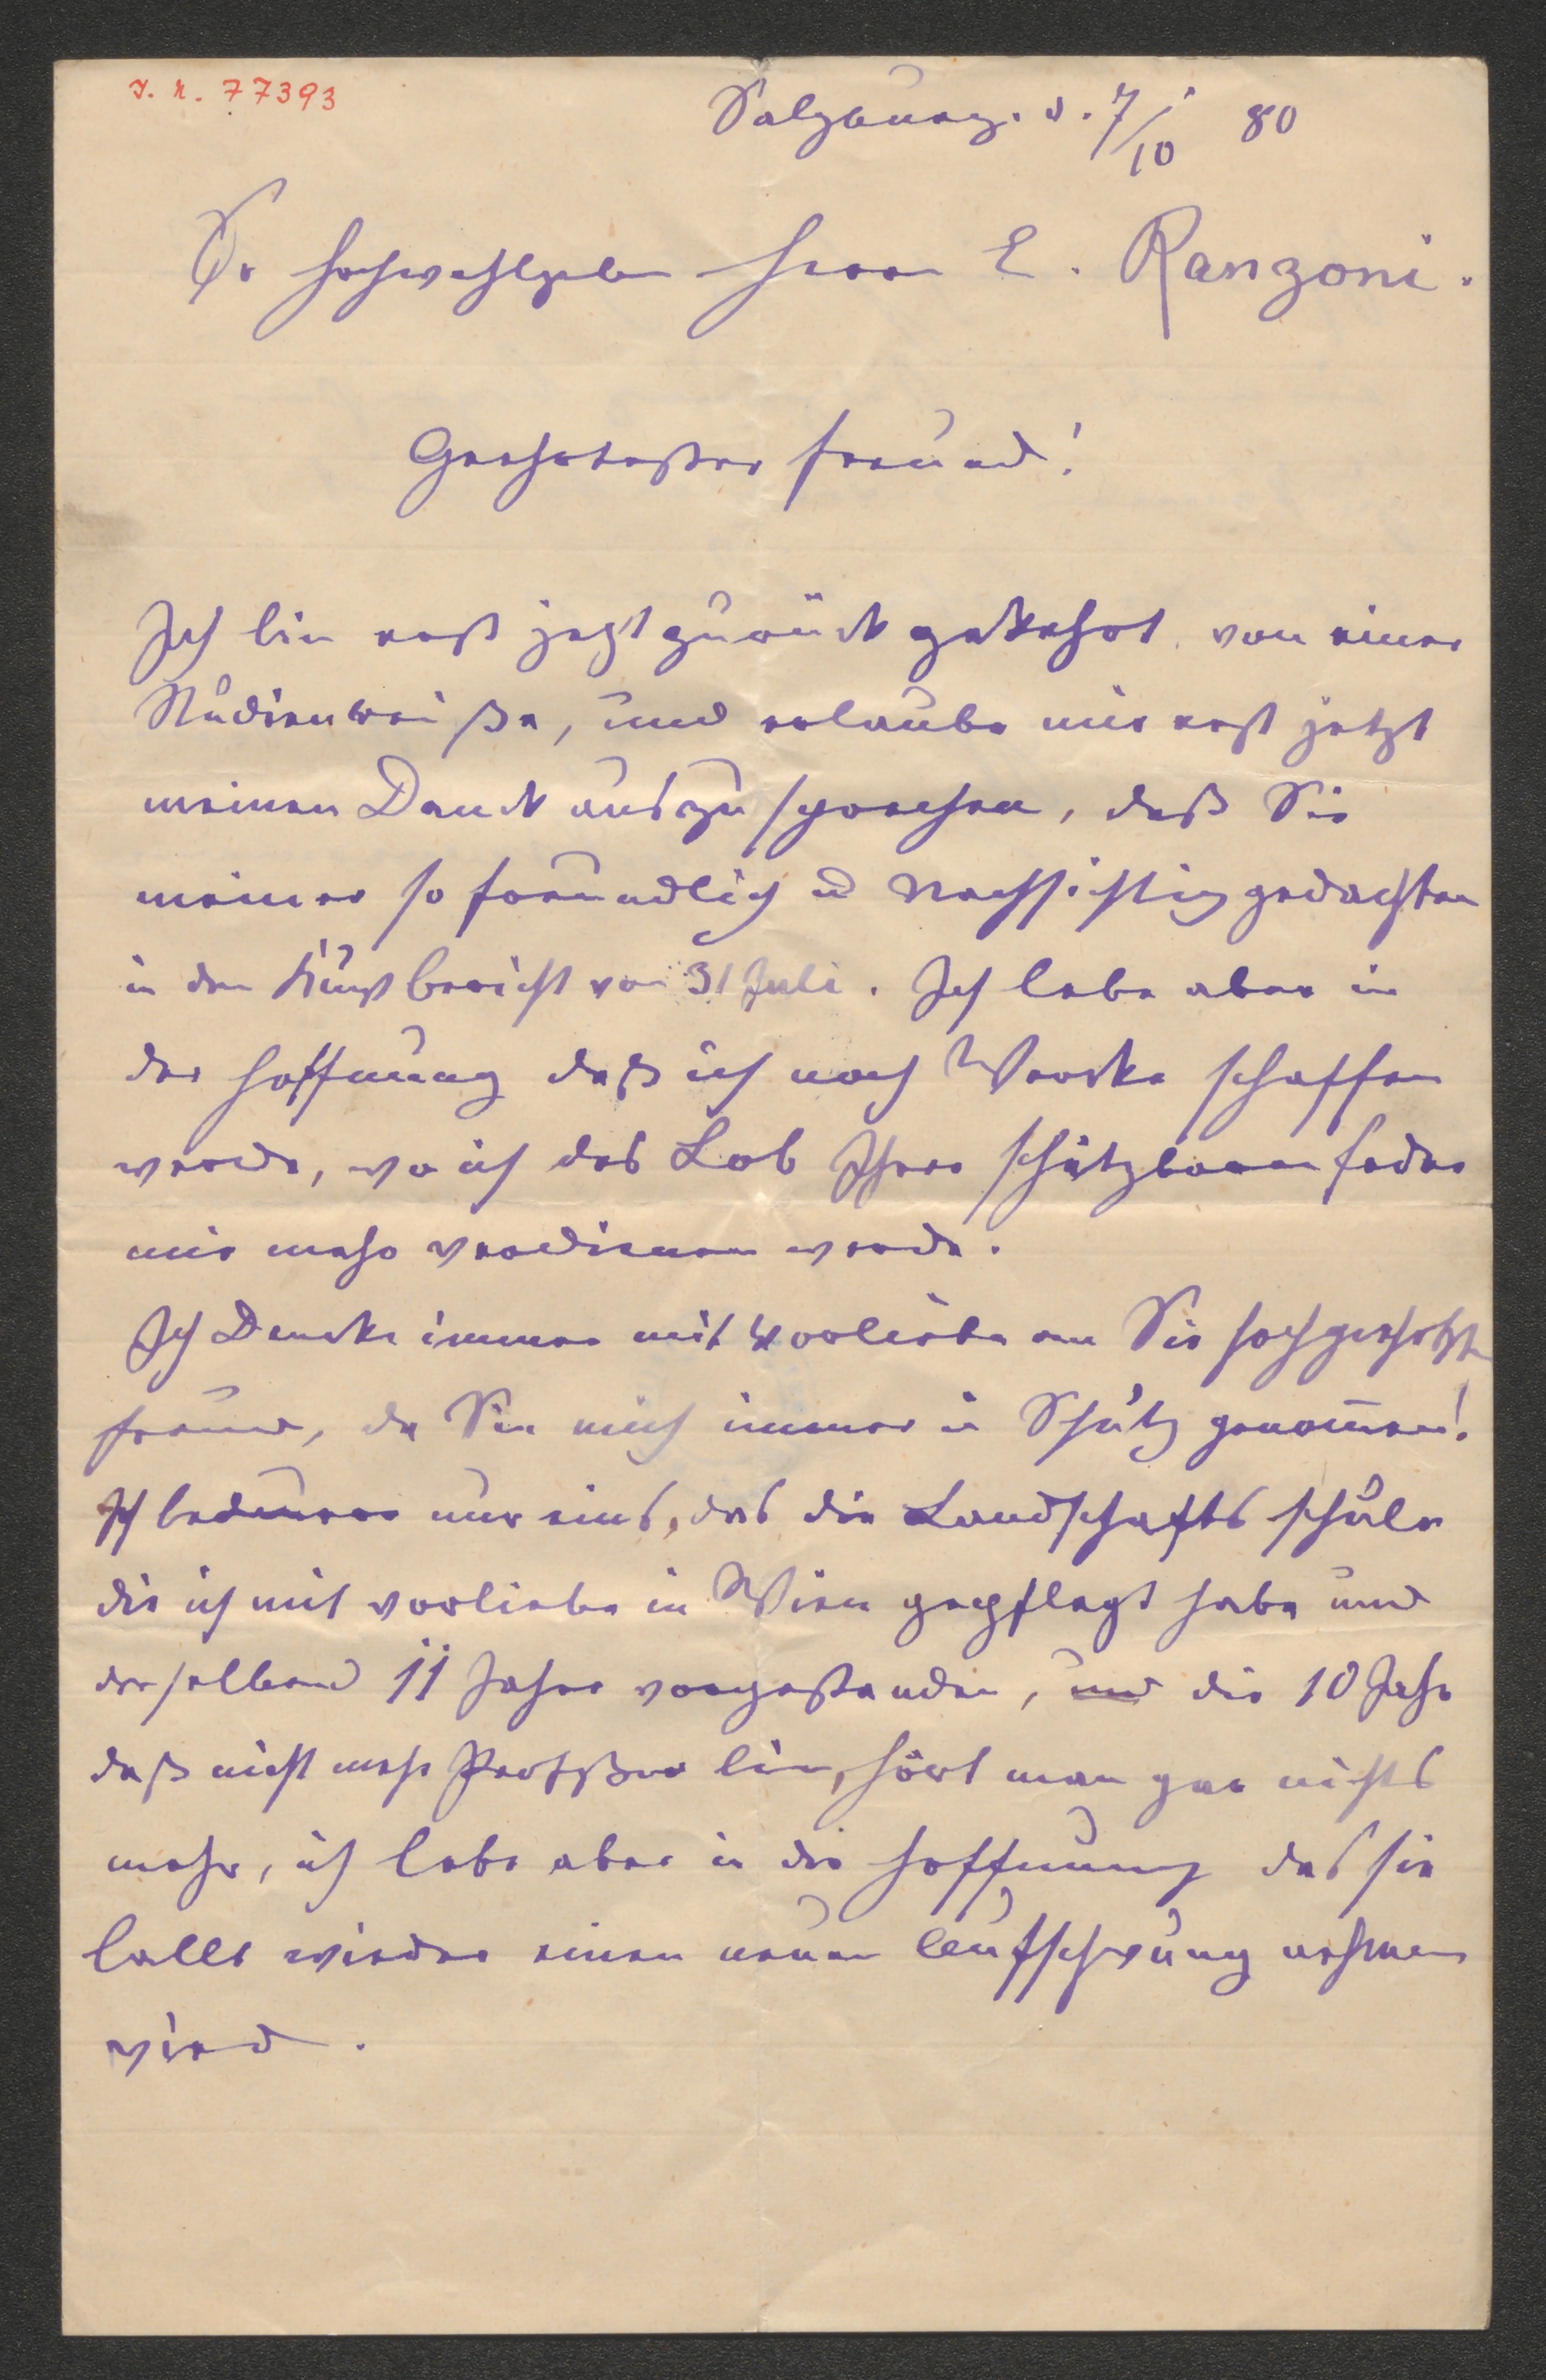 I. N. 77393
Salzburg. d. 7/10 80
Sr Hochwohlgeben Herrn E. Ranzoni.
Geehrtester Freund!
Ich bin erst jetzt zurück gekehrt von einer
Studienreise, und erlaube mir erst jetzt
meinen Danck auszusprechen, daß Sie
meiner so freundlich u nachsichtig gedachten
in den Kunstbericht von 31 Juli. Ich lebe aber in
der Hoffnung daß ich noch Wercke schaffen
werde, wo ich das Lob Ihrer schätzbaren Feder
mir mehr verdienen werde.
Ich Dencke immer mit Vorliebe an Sie hochgeehrter
Freund, da Sie mich immer in Schutz genommen!
Ich bedauere nur eins, das die Landschafts schule
die ich mit vorliebe in Wien gepflegt habe und
derselben 11 Jahre vorgestanden, und die 10 Jahr
daß nicht mehr Profeßor bin, hört man gar nichts
mehr, ich lebe aber in die Hoffnung das sie
balld wieder einen neuen Aufschwung nehmen
wird.